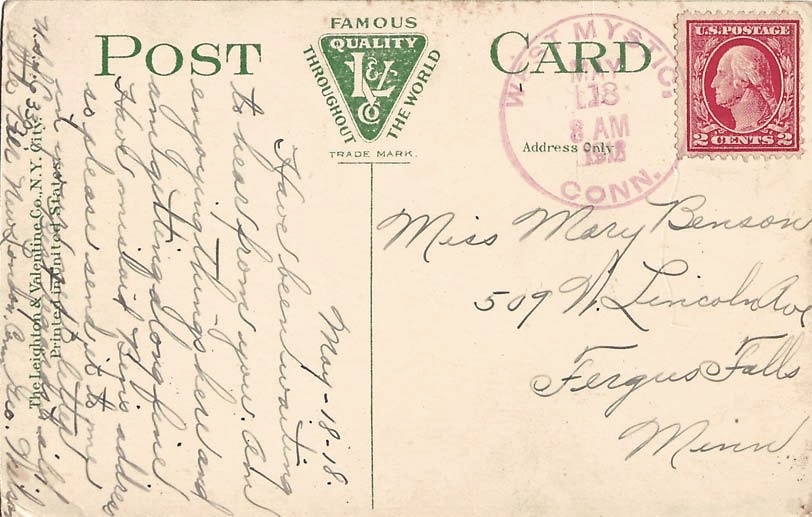 POST CARD
FAMOUS
QUALITY
L&V
Co
THROUGHOUT THE WORLD
TRADE MARK.
Address Only
WEST MYSTIC,
MAY
18
8 AM
CONN.
U.S. POSTAGE
2 CENTS 2
Miss Mary Benson
509 N. Lincoln Ave
Fergus Falls
Minn.
May-18-18.
Have been waiting
to hear from you. Am
enjoying things here and
am getting along fine
Have mislaid Ben's address
so please send it to me
in letter
New London Conn.
The Leighton & Valentine Co., N.Y. City.
Printed in United States.